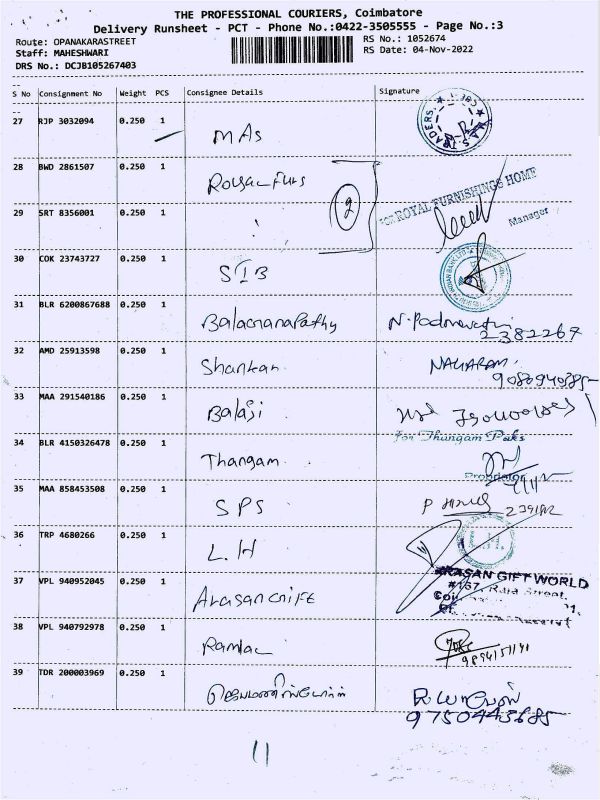 THE PROFESSIONAL COURIERS, Coimbatore
Delivery Runsheet - PCT - Phone No.:0422-3505555 - Page No.:3
Route: OPANAKARASTREET
RS No.: 1052674
Staff: MAHESHWARI
RS Date: 04-Nov-2022
DRS No.: DCJB105267403
S No Consignment No Weight PCS Consignee Details Signature
27 RJP 3032094 0.250 1 MAS
TRADERS
28 BWD 2861507 0.250 1 Royal Furs
2
For ROYAL FURNISHINGS HOME
Manager
29 SRT 8356001 0.250 1
30 COK 23743727 0.250 1 SIB
31 BLR 6200867688 0.250 1 Balachanapathy
2382267
32 AMD 25913598 0.250 1 Shankar
9080940385
33 MAA 291540186 0.250 1 Balaji
34 BLR 4150326478 0.250 1 Thangam
For Thangam Paks
Proprietor
35 MAA 858453508 0.250 1 SPS
36 TRP 4680266 0.250 1 L.H
L.H.
37 VPL 940952045 0.250 1 Arasan Gift
ARASAN GIFT WORLD
38 VPL 940792978 0.250 1 Ramlac
39 TDR 200003969 0.250 1
9750443685
11